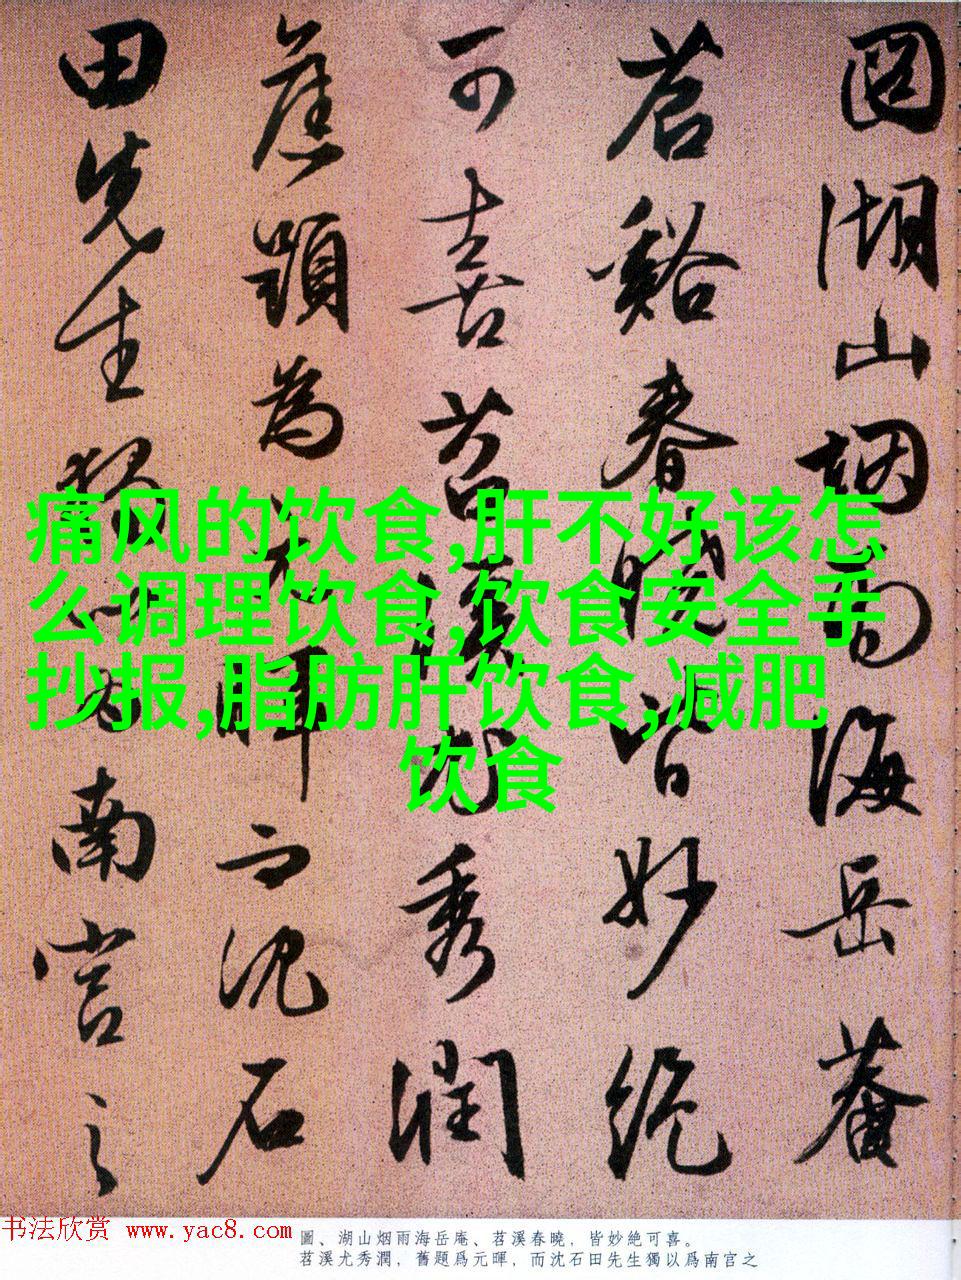 圖湖山烟雨海岳菴
苕谿春曉皆妙絶
可喜苕溪尤秀潤
舊題為元暉而沈石
田先生獨以為南宫之
痛风的饮食,肝不好该怎
么调理饮食,饮食安全手
抄报,脂肪肝饮食,减肥
饮食
书法欣赏 www.yac8.com
圖、湖山烟雨海岳庵、苕溪春曉，皆妙絶可喜。
苕溪尤秀潤，舊題爲元暉，而沈石田先生獨以爲南宫之